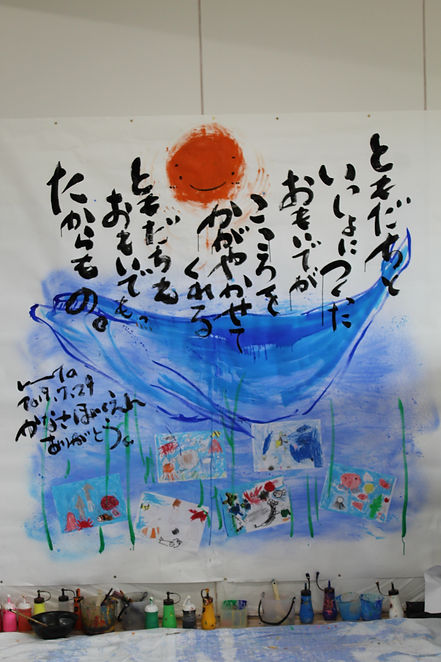 ともだちと
いっしょにつくった
おもいでが
こころを
かがやかせて
くれる
ともだちも
おもいでも
たからもの。
ありがとう。